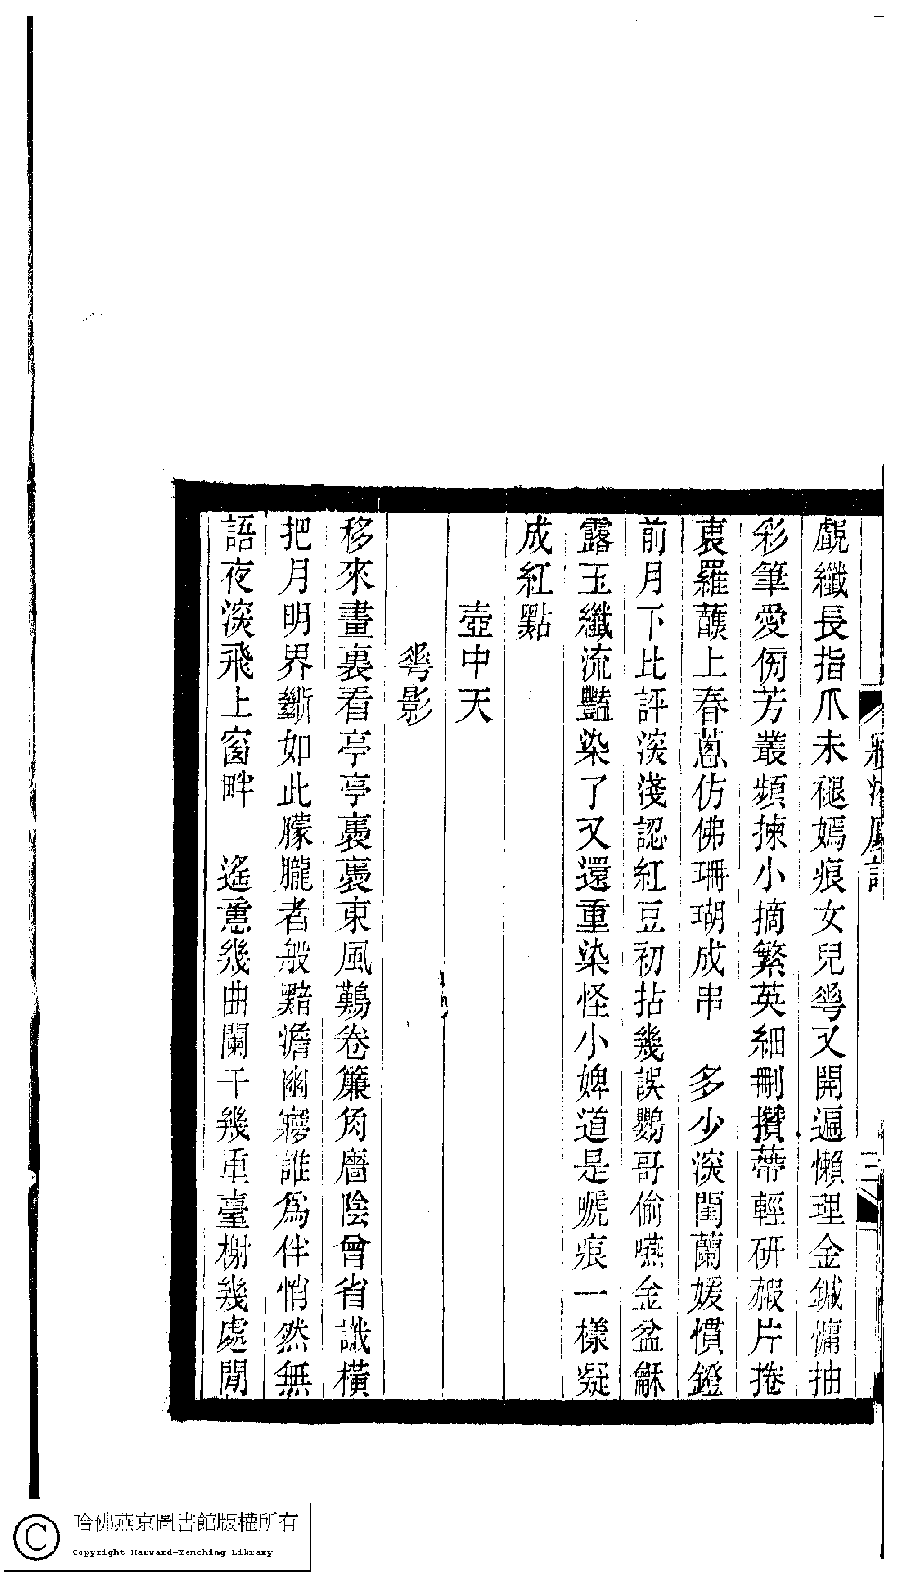 覷纖長指爪未褪嫣痕女兒蕐又開遍懶理金鍼慵抽
彩筆愛傍芳叢頻揀小摘繁英細刪攢蒂輕研椴片捲
裏羅蘸上春蔥仿佛珊瑚成串　多少深閨蘭媛慣鐙
前月下比評淡淺認紅豆初拈幾誤鸚哥偷嚥金盆龢
露玉纖流豔染了又還重染怪小婢道是䖙痕一樣凝
成紅點
壺中天
蕐影
移來畫裏看亭亭裊裊東風鷬卷簾角牆陰曾省識橫
把月明界斷如此朦朧者般黯澹幽夢誰爲伴悄然無
語夜深飛上窗畔　遙憶幾曲闌干幾重臺榭幾處閒
三
哈佛燕京圖書館版權所有
Copyright Harvard-Yenching Library